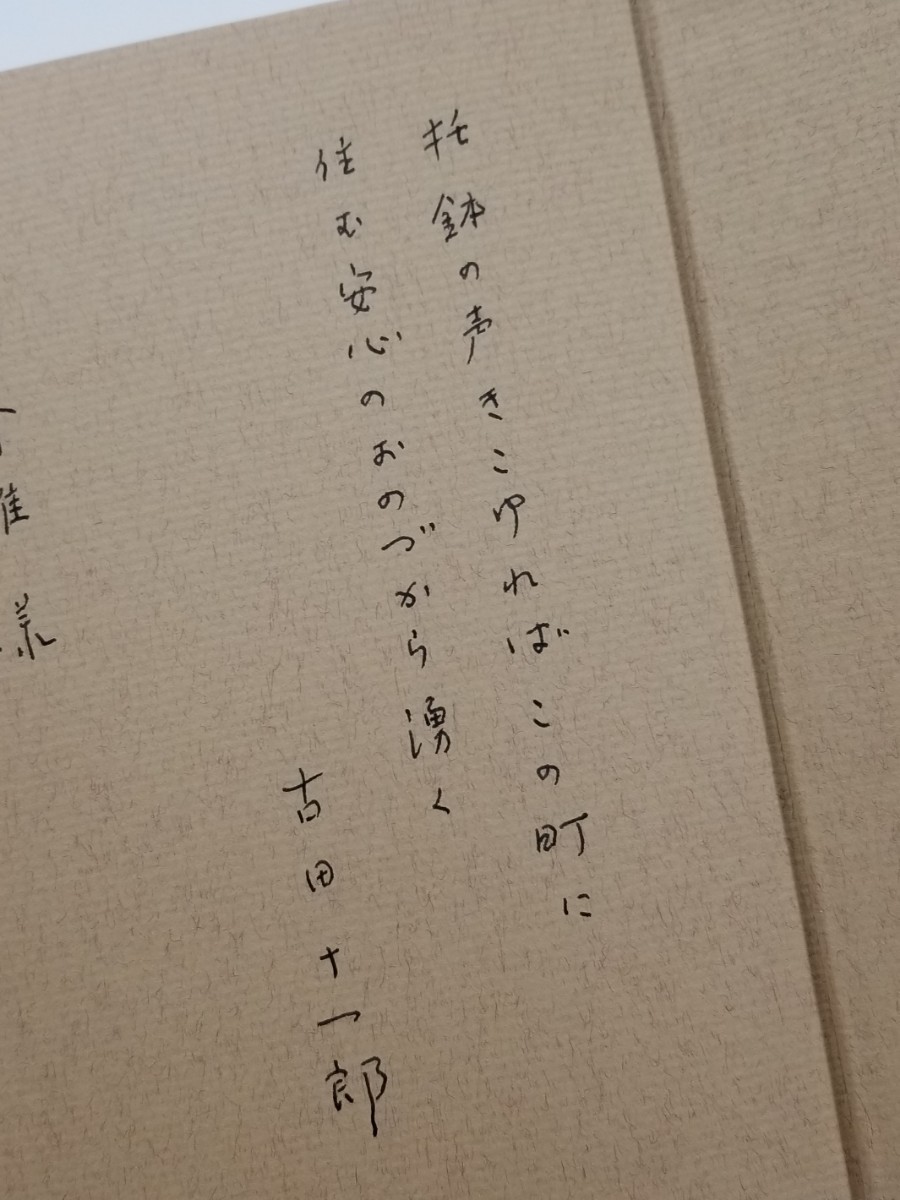 托鉢の声きこゆればこの町に
住む安心のおのづから湧く
古田十一郎
様